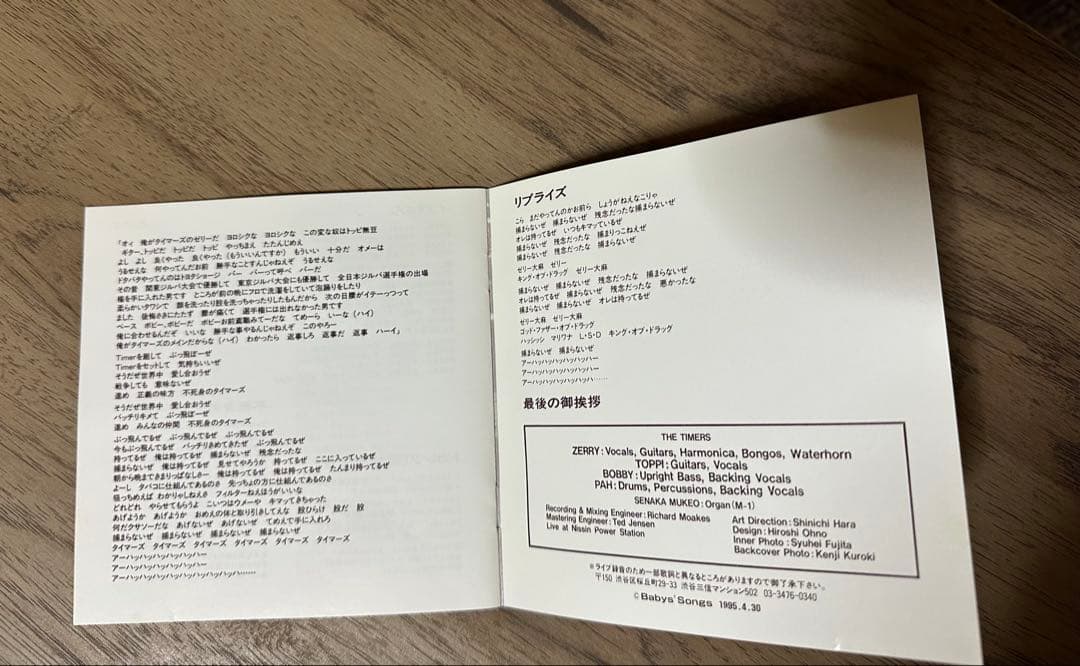 「オィ 俺がタイマーズのゼリーだ ヨロシクな ヨロシクな この変な奴はトッピ無豆
ギター、トッピだ トッピだ トッピ やっちまえ たたんじめえ
よし よし 良くやった 良くやった (もういいんですか) もういい 十分だ オメーは
うるせえな 何やってんだお前 勝手なことすんじゃねえぞ うるせえな
ドタバタやってんのはトヨタショージ パー パーって呼べ パーだ
その昔 関東ジルバ大会で優勝して 東京ジルバ大会にも優勝して 全日本ジルバ選手権の出場
権を手に入れた男です ところが前の晩にフロで洗濯をしていて泡踊りをしたり
柔らかいタワシで 顔を洗ったり股を洗っちゃったりしたもんだから 次の日腰がイテーっつって
ました 後悔さきにたたず 腰が痛くて 選手権には出れなかった男です
ベース ボビー、ボビーだ ボビーお前盗聴みてーだな てめーら いーな (ハイ)
俺に合わせるんだぞ いいな 勝手な事やるんじゃねえぞ このやろー
俺がタイマーズのメインだからな (ハイ) わかったら 返事しろ 返事だ 返事 ハーイ」
Timerを廻して ぶっ飛ばーぜ
Timerをセットして 気持ちいいぜ
そうだぜ世界中 愛し合おうぜ
戦争しても 意味ないぜ
進め 正義の味方 不死身のタイマーズ
そうだぜ世界中 愛し合おうぜ
バッチリキメて ぶっ飛ばーぜ
進め みんなの仲間 不死身のタイマーズ
ぶっ飛んでるぜ ぶっ飛んでるぜ ぶっ飛んでるぜ
今もぶっ飛んでるぜ バッチリきめてきたぜ ぶっ飛んでるぜ
持ってるぜ 俺は持ってるぜ 捕まらないぜ 残念だったな
捕まらないぜ 俺は持ってるぜ 見せてやろうか 持ってるぜ ここに入っているぜ
朝から晩まできまりっぱなしさー 俺は持ってるぜ 俺は持ってるぜ たんまり持ってるぜ
よーし タバコに仕組んであるのさ 先っちょの方に仕組んであるのさ
狙っちめえば わかりゃしねえさ フィルターねえほうがいいな
どれどれ やらせてもらうよ こいつはウメーや キマッてきちゃった
あげようか あげようか おめえの体と取り引きしてえな 股ひらけ 股だ 股
何だクサソーだな あげないぜ あげないぜ てめえで手に入れろ
捕まらないぜ 捕まらないぜ 捕まらないぜ 捕まらないぜ
タイマーズ タイマーズ タイマーズ タイマーズ タイマーズ タイマーズ
アーハッハッハッハッハッハー
アーハッハッハッハッハッハー
アーハッハッハッハッハッハッハッハッハ……
リプライズ
こら まだやってんのかお前ら しょうがねえなこりゃ
捕まらないぜ 捕まらないぜ 残念だったな捕まらないぜ
オレは持ってるぜ いつもキマッているぜ
捕まらないぜ 残念だったな 捕まりっこねえぜ
捕まらないぜ 残念だったな 捕まらないぜ
ゼリー大麻 ゼリー
キング・オブ・ドラッグ ゼリー大麻
捕まらないぜ 捕まらないぜ 残念だったな 捕まらないぜ
オレは持ってるぜ 捕まらないぜ 残念だったな 悪かったな
捕まらないぜ 捕まらないぜ オレは持ってるぜ
ゼリー大麻 ゼリー大麻
ゴッド・ファザー・オブ・ドラッグ
ハッシッシ マリワナ L・S・D キング・オブ・ドラッグ
捕まらないぜ 捕まらないぜ
アーハッハッハッハッハッハー
アーハッハッハッハッハッハー
アーハッハッハッハッハッハ……
最後の御挨拶
THE TIMERS
ZERRY:Vocals, Guitars, Harmonica, Bongos, Waterhorn
TOPPI:Guitars, Vocals
BOBBY:Upright Bass, Backing Vocals
PAH:Drums, Percussions, Backing Vocals
SENAKA MUKEO:Organ(M-1)
Recording & Mixing Engineer:Richard Moakes
Mastering Engineer:Ted Jensen
Live at Nissin Power Station
Art Direction:Shinichi Hara
Design:Hiroshi Ohno
Inner Photo:Syuhei Fujita
Backcover Photo:Kenji Kuroki
※ライブ録音のため一部歌詞と異なるところがありますので御了承下さい。
〒150 渋谷区桜丘町29-33 渋谷三信マンション502 03-3476-0340
©Babys' Songs 1995.4.30